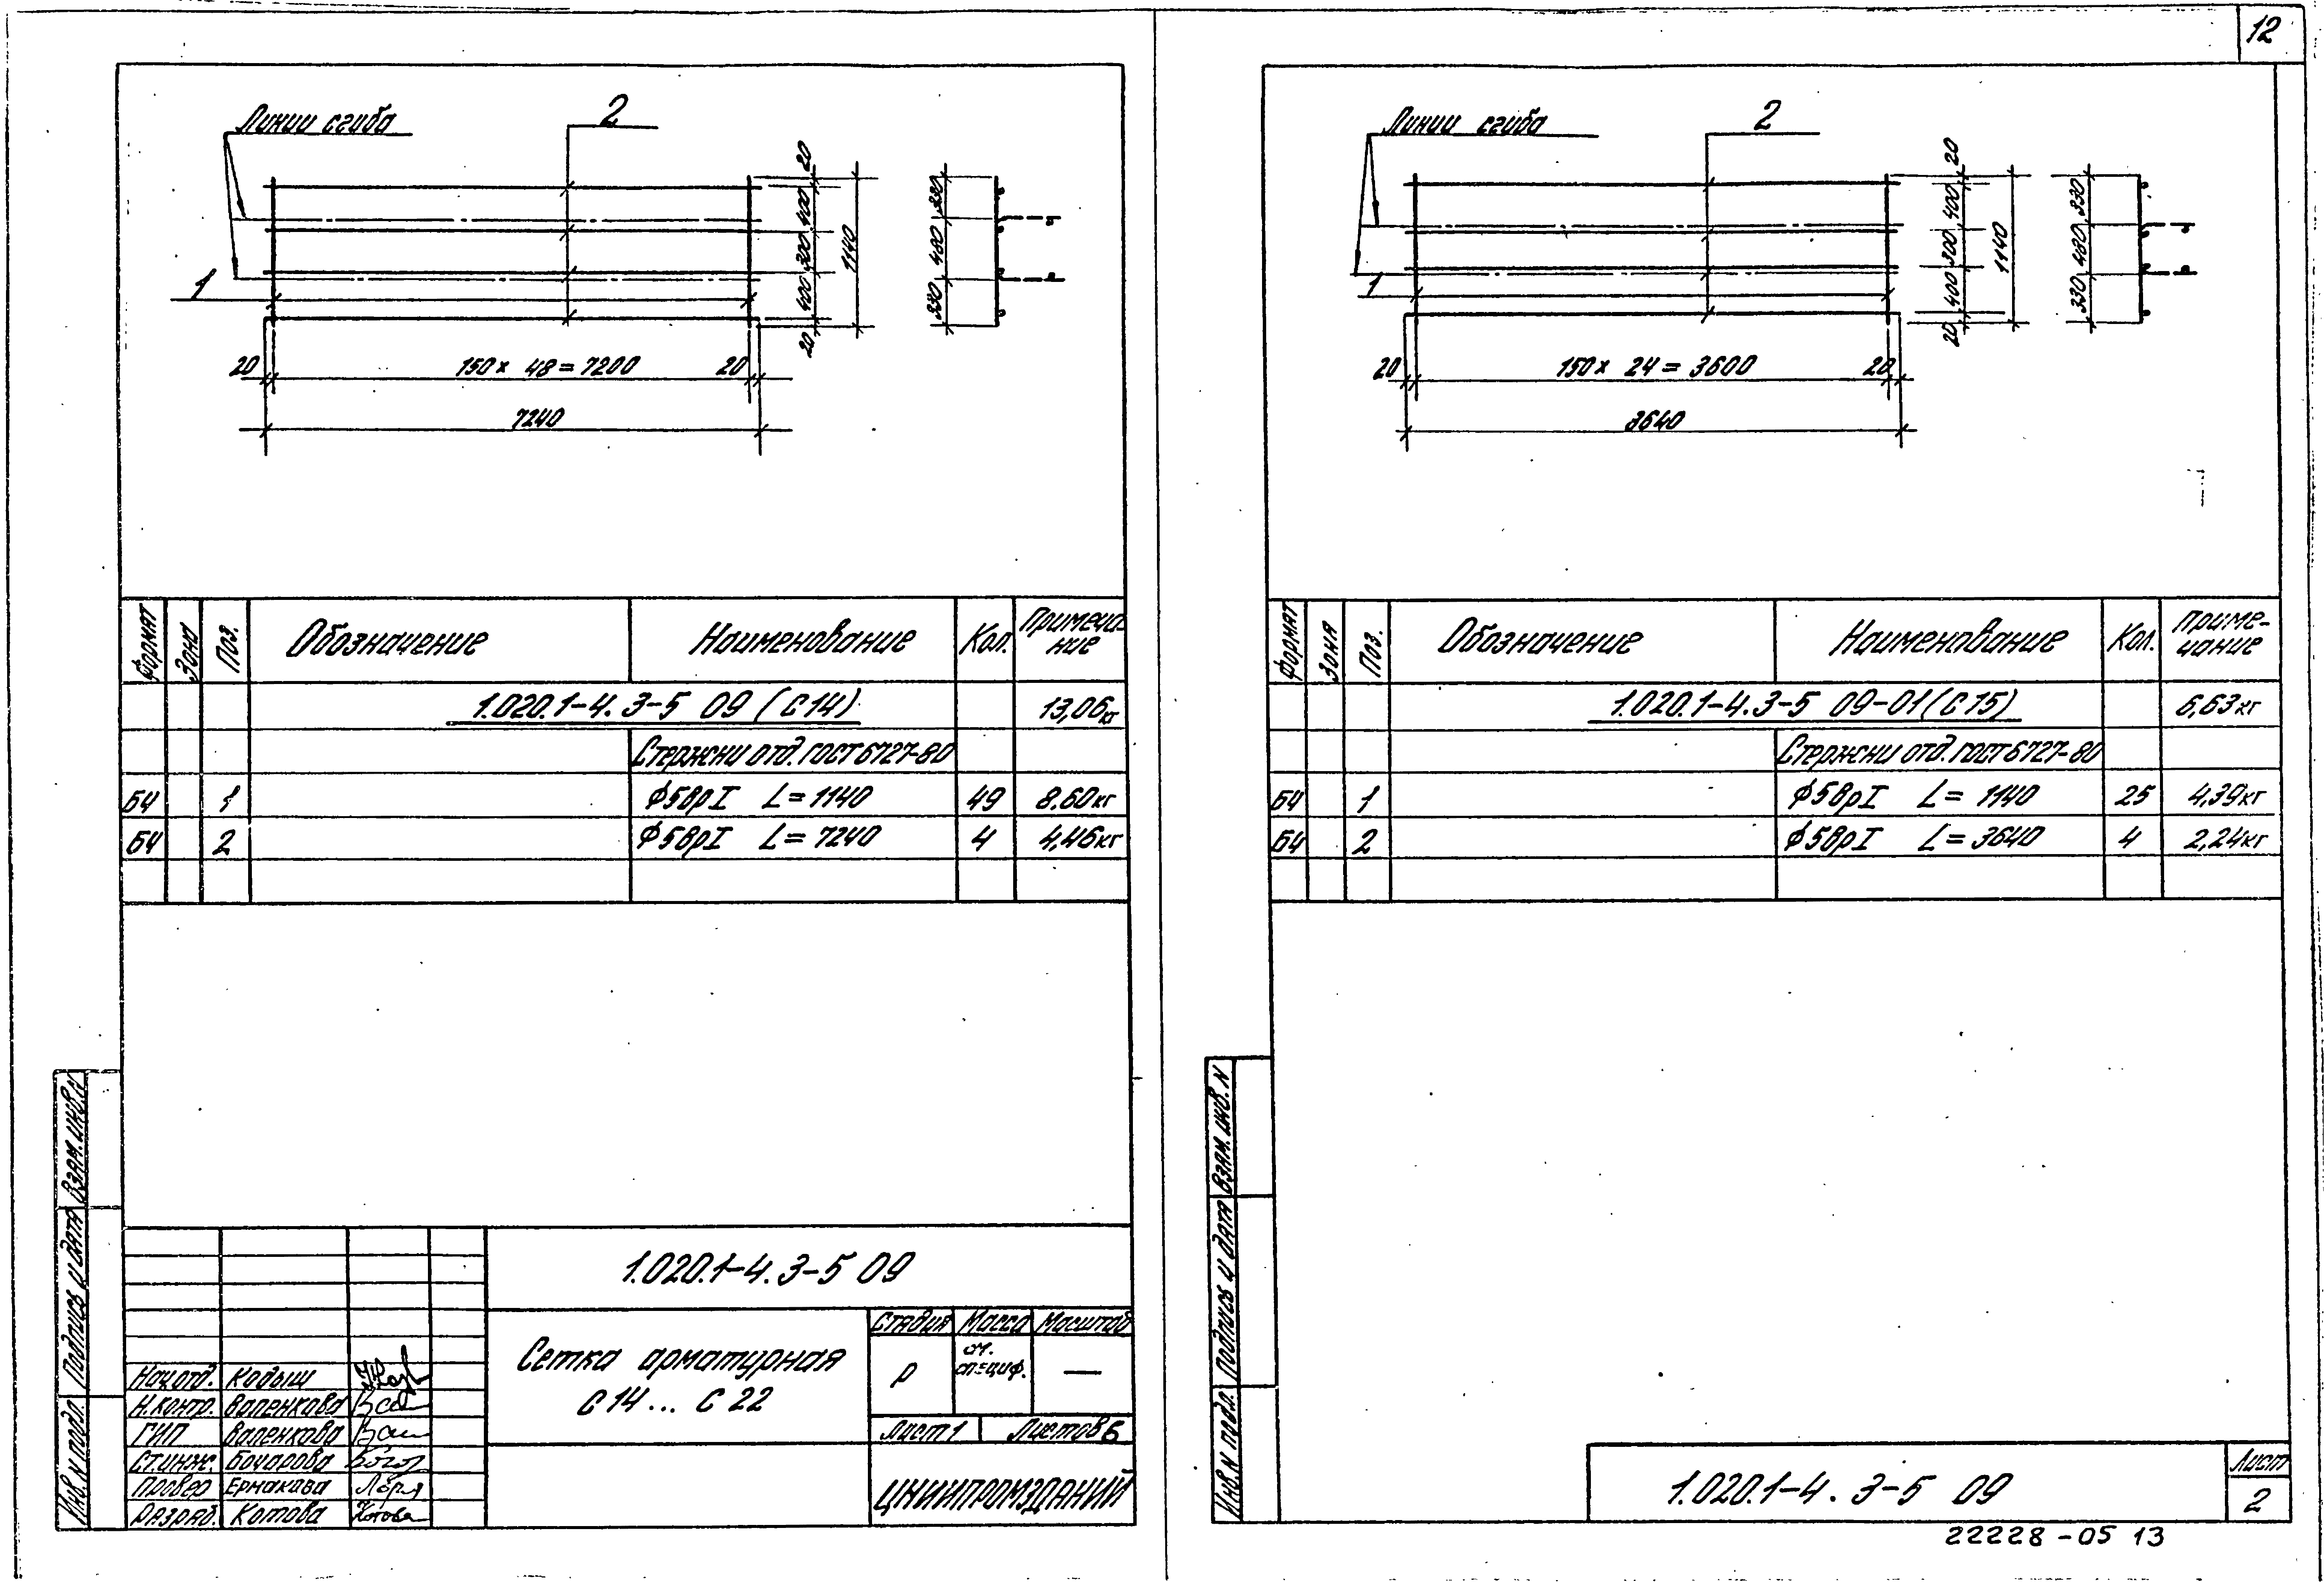 12
Линии сгиба
2
1
20
400
300
400
20
1140
330
480
330
20
150 х 48 = 7200
20
7240
Формат Зона Поз. Обозначение Наименование Кол. Примеча-ние
1.020.1-4.3-5 09 (С14) 13,06кг
Стержни отд. ГОСТ 6727-80
БЧ 1 φ5ВрI L=1140 49 8.60кг
БЧ 2 φ5ВрI L=7240 4 4,46кг
1.020.1-4.3-5 09
Сетка арматурная
С 14... С 22
Стадия Масса Масштаб
Р см. специф. —
Лист 1 Листов 6
ЦНИИПРОМЗДАНИЙ
Нач.отд. Кодыш
Н.контр. Валенкова
ГИП Валенкова
Ст.инж. Бочарова
Провер Ермакова
Разраб. Котова
Инв.N подл. Подпись и дата Взам.инв.N
Линии сгиба
2
1
20
400
300
400
20
1140
330
480
330
20
150 х 24 = 3600
20
3640
Формат Зона Поз. Обозначение Наименование Кол. Приме-чание
1.020.1-4.3-5 09-01 (С15) 6,63кг
Стержни отд. ГОСТ 6727-80
БЧ 1 φ5ВрI L= 1140 25 4,39кг
БЧ 2 φ5ВрI L= 3640 4 2,24кг
Инв.N подл. Подпись и дата Взам. инв.N
1.020.1-4.3-5 09
Лист
2
22228-05 13